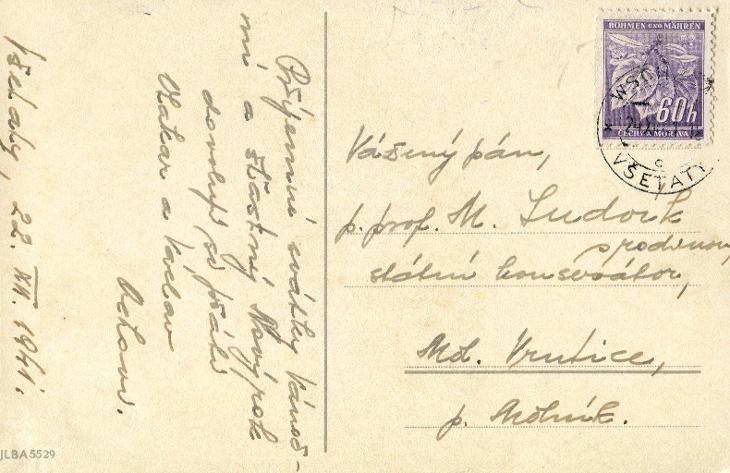 Všetaty, 22. XII. 1941.
Příjemné svátky vánoč-
ní a šťastný Nový rok
dovolují si přáti
Otakar a Václav
BÖHMEN UND MÄHREN
60h
ČECHY A MORAVA
VŠETATY
Vážený pán,
p. prof. M. Ludvík
s rodinou,
státní konservátor,
Měl. Vrutice,
p. Mělník.
JLBA5529